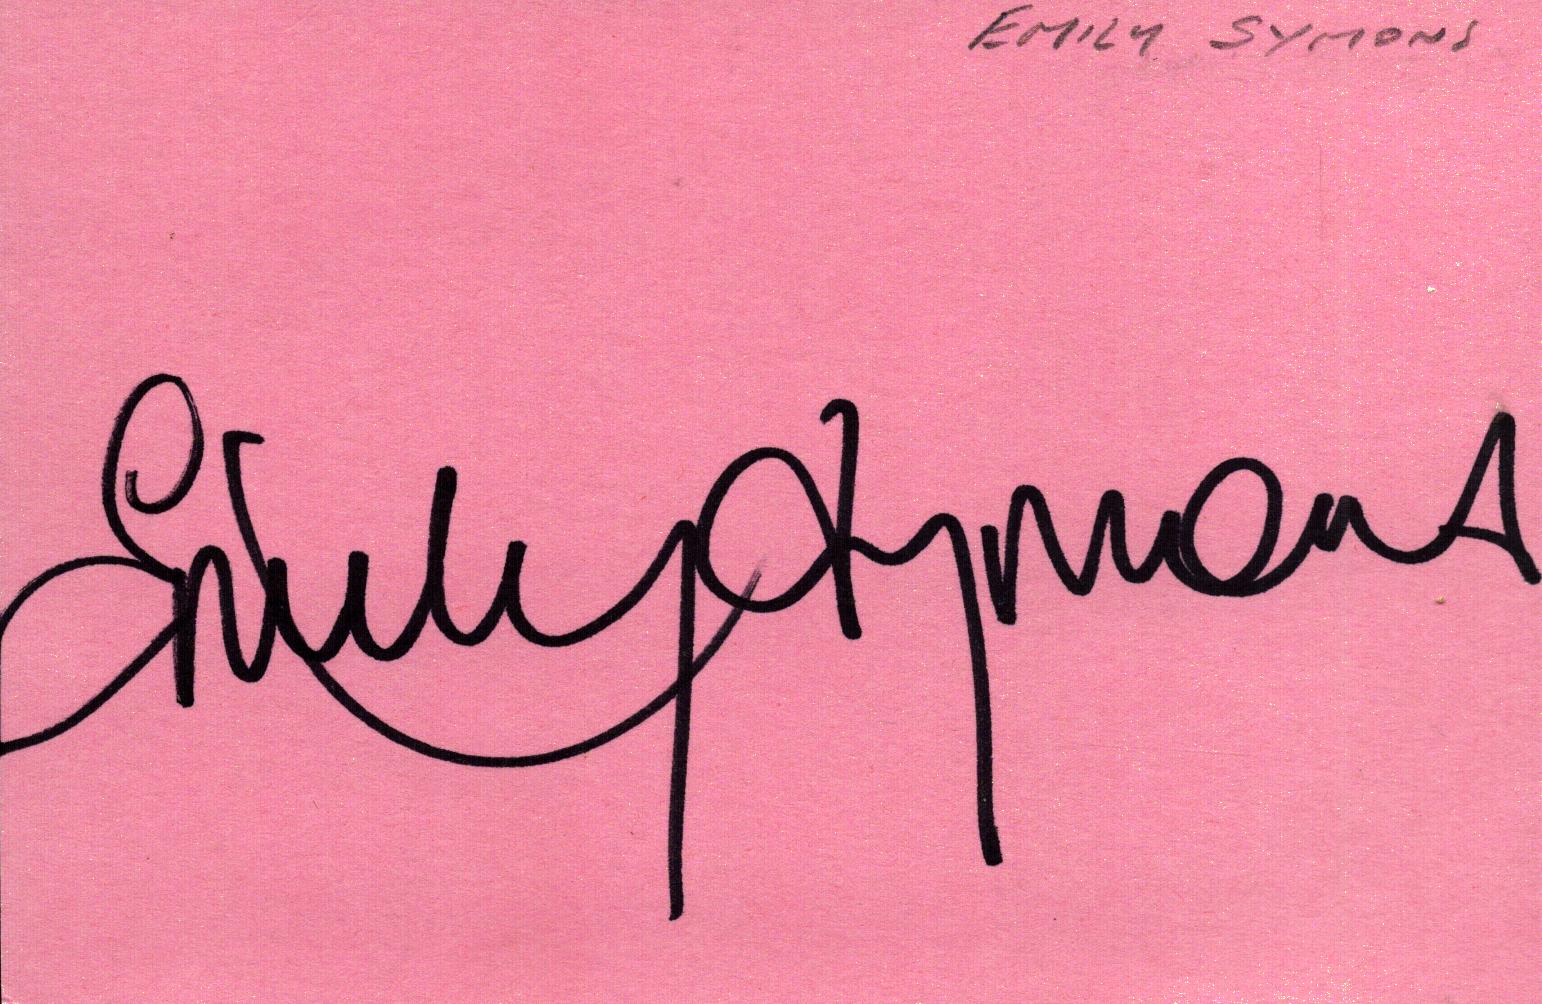 EMILY SYMONS
Emily Symons